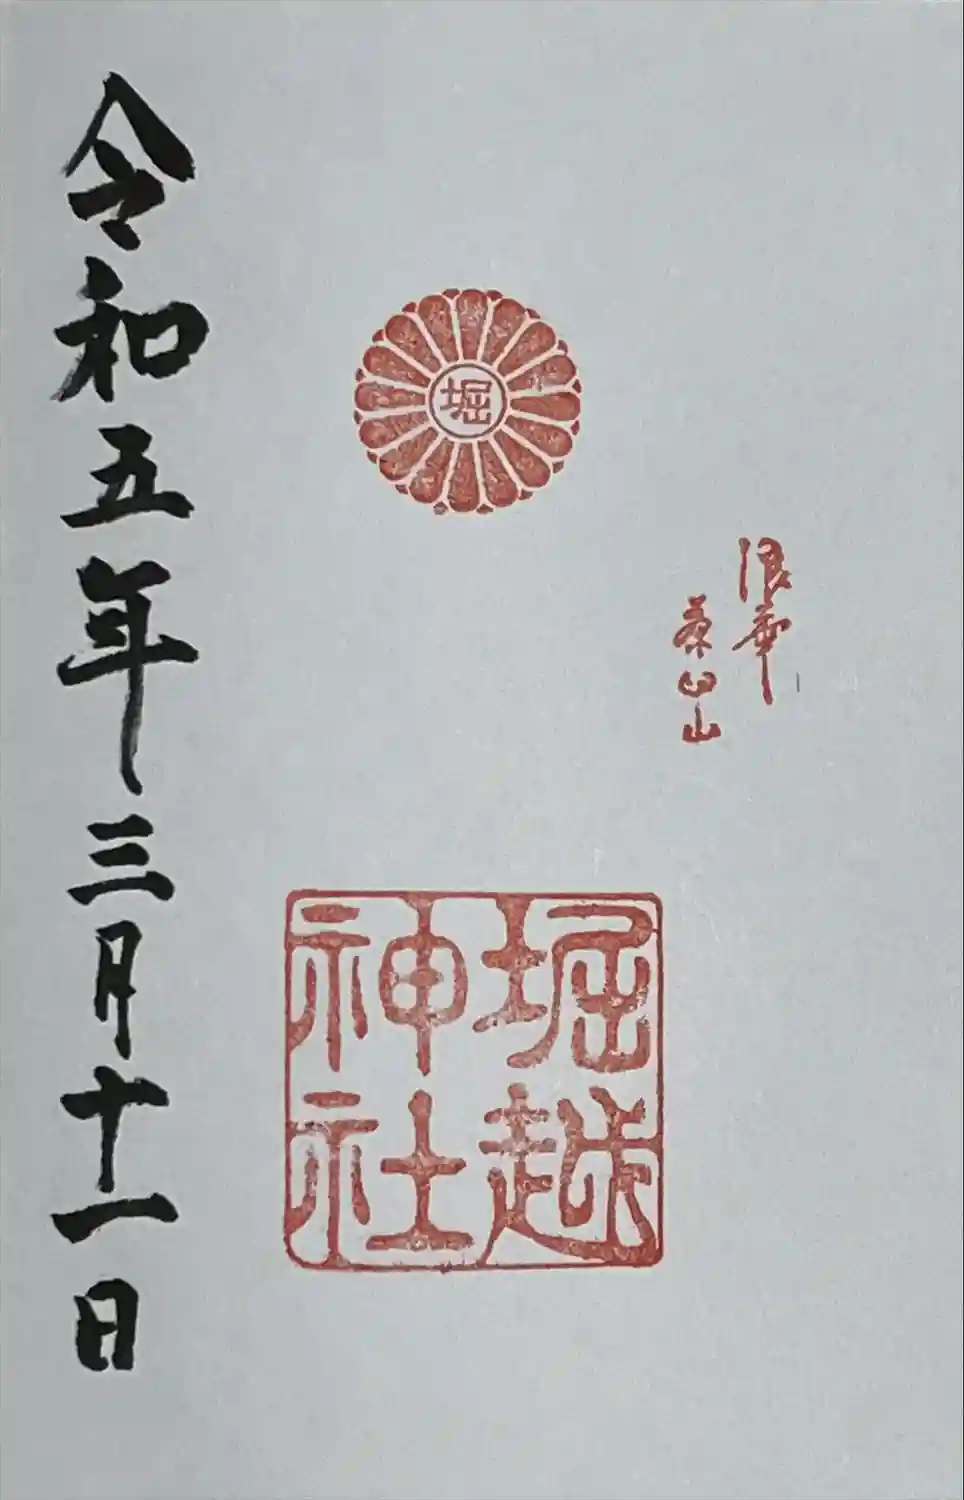 浪華
茶臼山
堀
堀越
神社
令和五年三月十一日